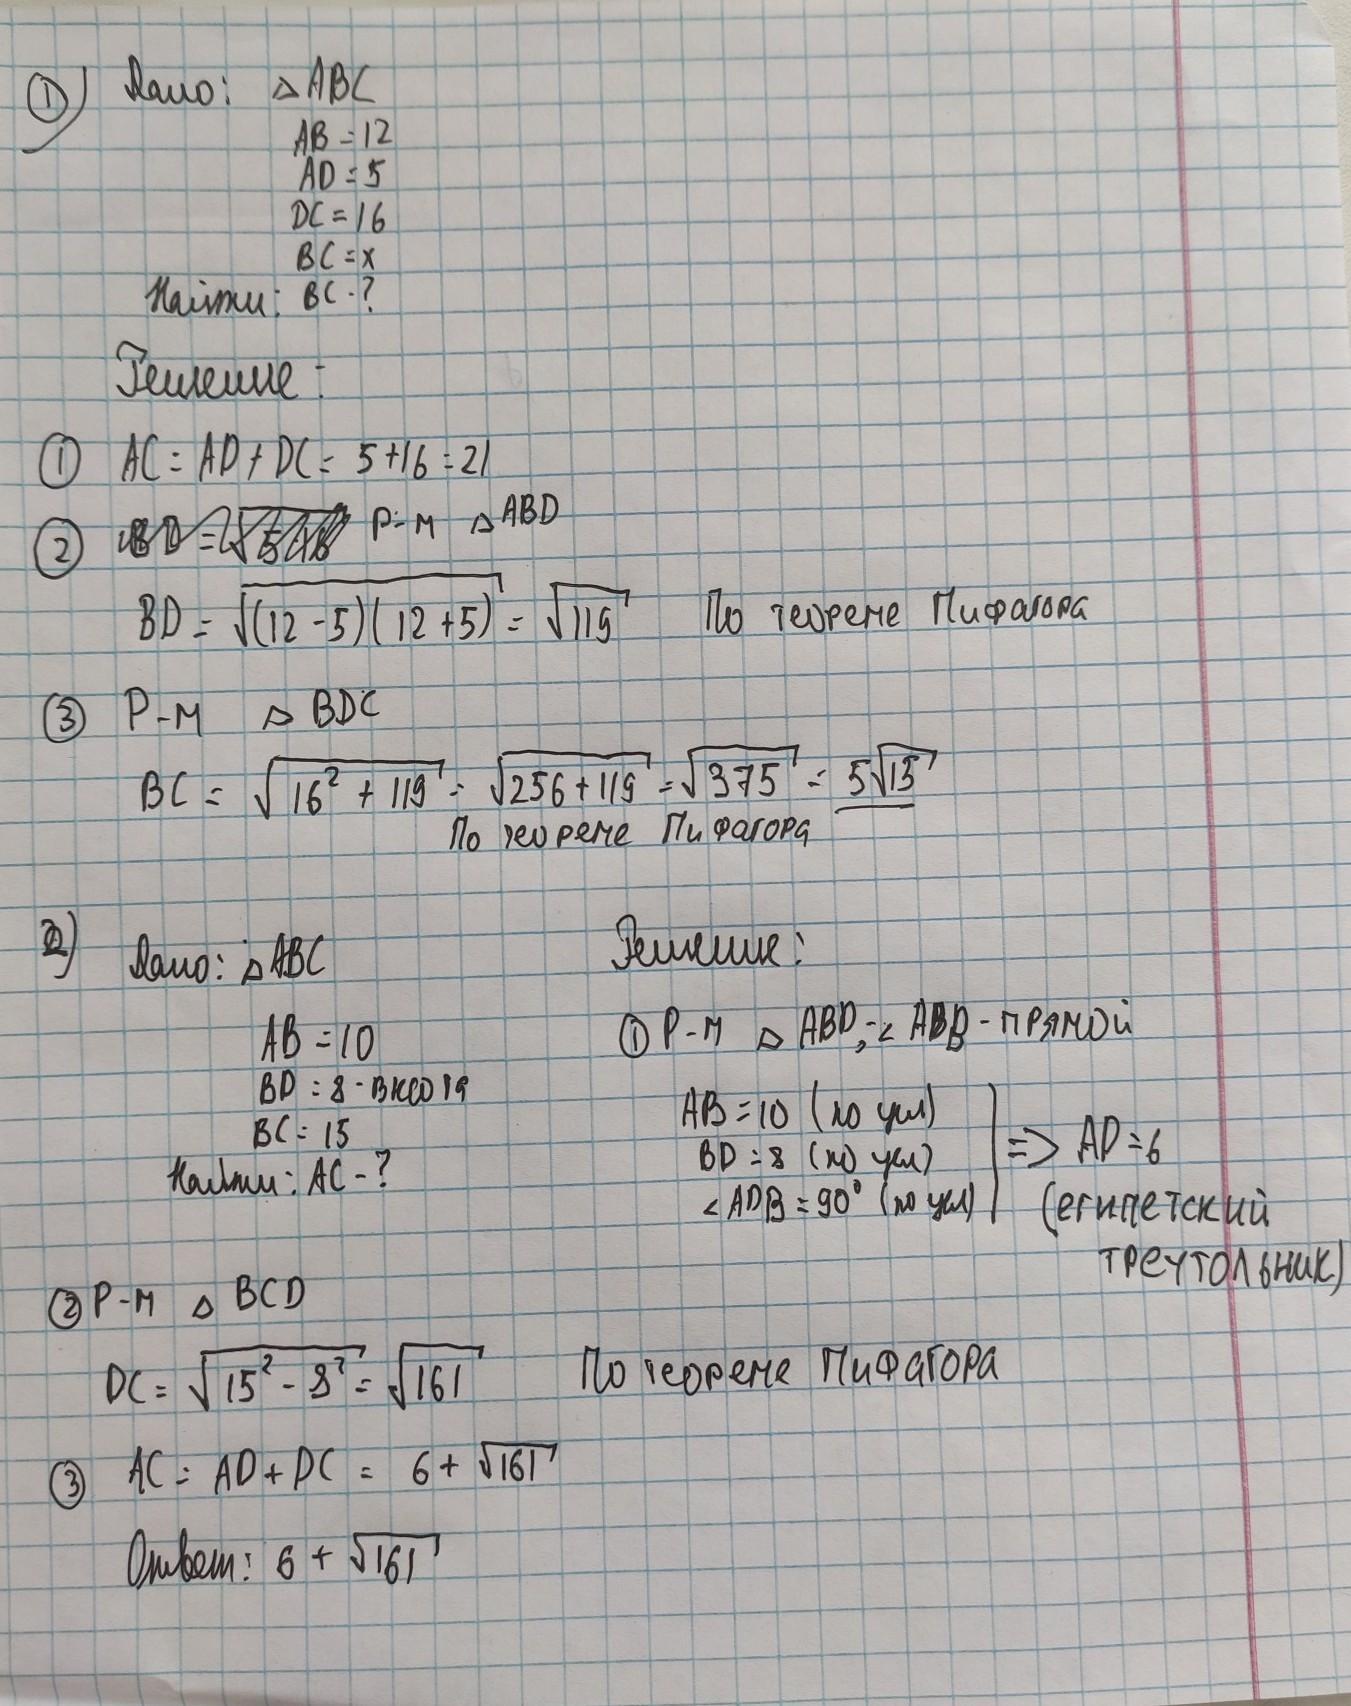 1) Дано: △ABC
AB = 12
AD = 5
DC = 16
BC = x
Найти: BC - ?
Решение:
① AC = AD + DC = 5+16 = 21
② Р-м △ABD
BD = √((12-5)(12+5)) = √119 По теореме Пифагора
③ Р-м △ BDC
BC = √(16² + 119) = √(256+119) = √375 = 5√15
По теореме Пифагора
2) Дано: △ABC Решение:
AB = 10
BD = 8 - высота
BC = 15
Найти: AC - ?
① Р-м △ ABD, < ADB - прямой
AB = 10 (по усл)
BD = 8 (по усл)
< ADB = 90° (по усл)
=> AD = 6
(египетский
треугольник)
② Р-м △ BCD
DC = √(15² - 8²) = √161 По теореме Пифагора
③ AC = AD + DC = 6 + √161
Ответ: 6 + √161